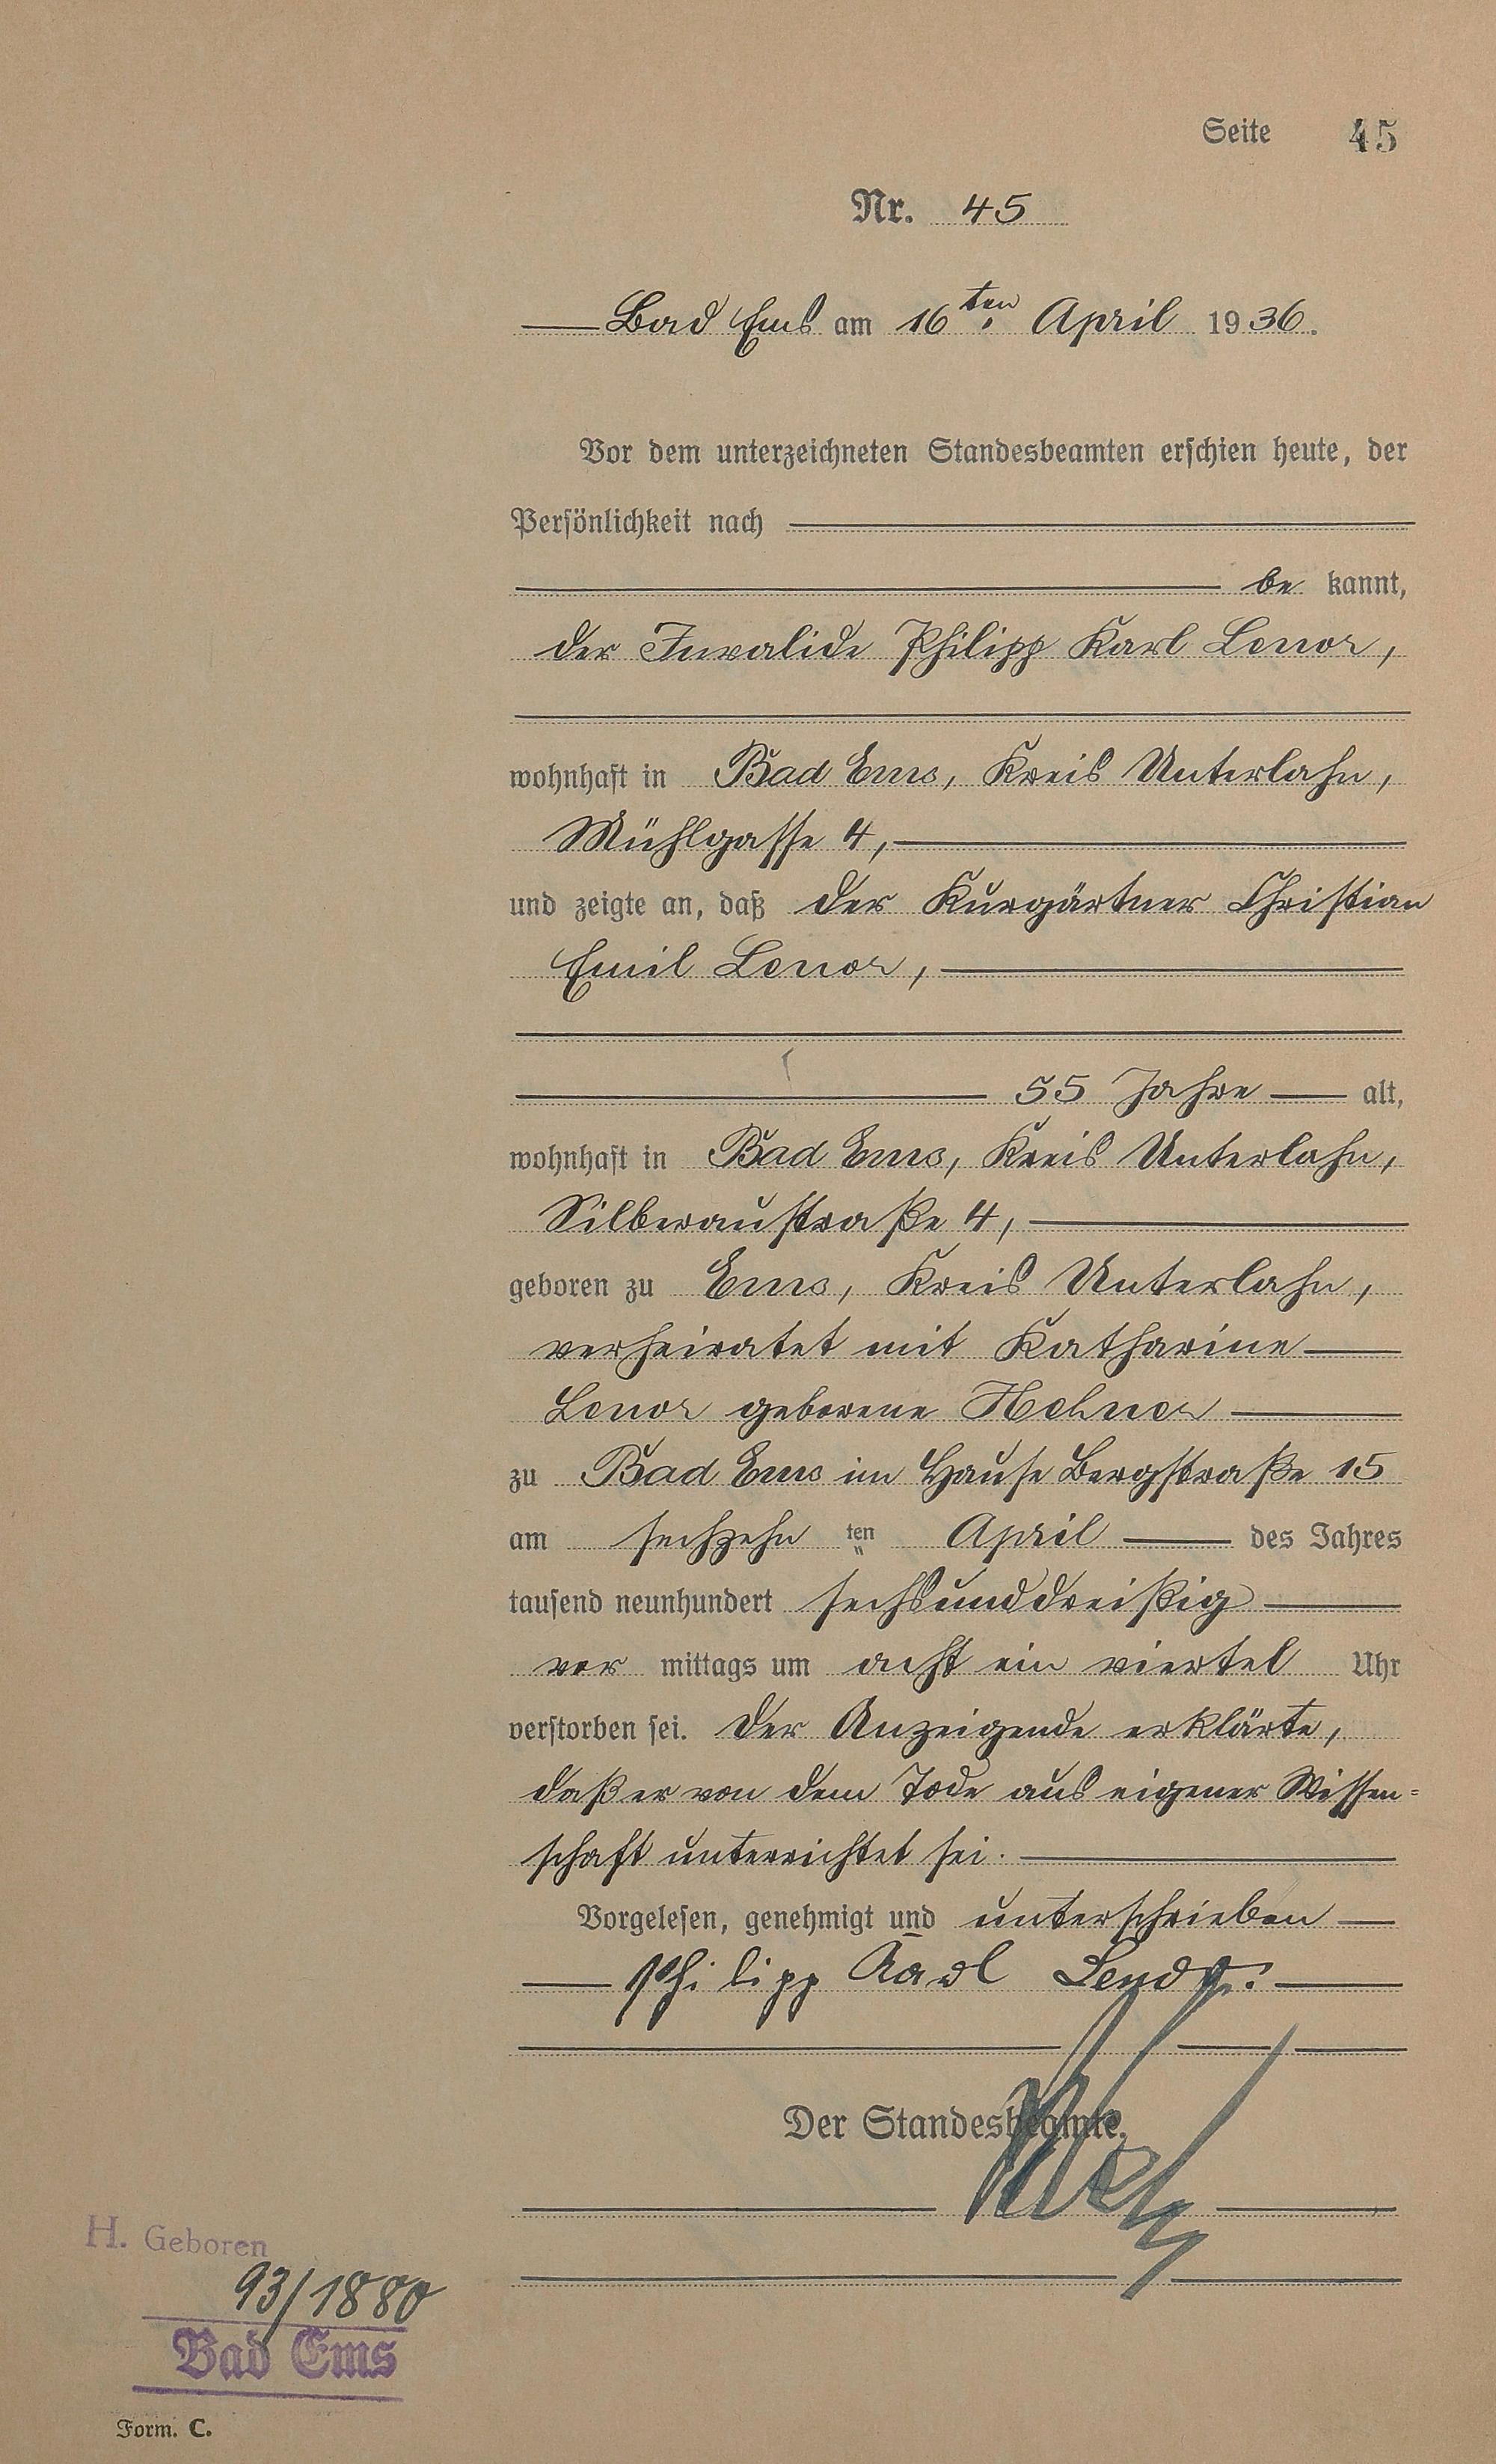 Seite 45
Nr. 45
Bad Ems am 16ten April 1936.
Vor dem unterzeichneten Standesbeamten erschien heute, der
Persönlichkeit nach
be kannt,
der Invalide Philipp Karl Lenor,
wohnhaft in Bad Ems, Kreis Unterlahn,
Mühlgasse 4,
und zeigte an, daß der Kurgärtner Christian
Emil Lenor,
55 Jahre alt,
wohnhaft in Bad Ems, Kreis Unterlahn,
Silberaustraße 4,
geboren zu Ems, Kreis Unterlahn,
verheiratet mit Katharine
Lenor geborene
zu Bad Ems im Hause Bergstraße 15
am sechzehn ten April des Jahres
tausend neunhundert sechsunddreißig
vor mittags um acht ein viertel Uhr
verstorben sei. Der Anzeigende erklärte,
daß er von dem Tode aus eigener Wissen=
schaft unterrichtet sei.
Vorgelesen, genehmigt und unterschrieben
Philipp Karl
Der Standesbeamte.
H. Geboren
93/1880
Bad Ems
Form. C.